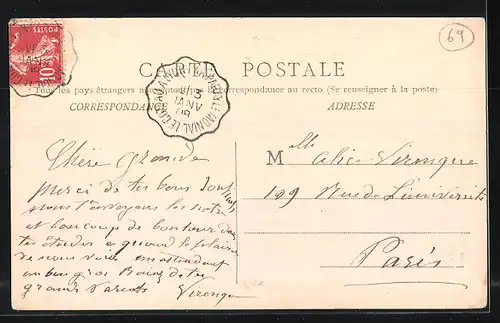 69
10
POSTES
CARTE POSTALE
Tous les pays étrangers n'acceptent pas la correspondance au recto (Se renseigner à la poste)
CORRESPONDANCE
ADRESSE
3
JANV
08
Chère grande
Merci de tes bons souhaits
nous t'envoyons les notres
et beaucoup de bonheur dans
tes études a quand le plaisir
de nous voir en attendant
un bon gros Baiser de tes
grands Parents Virenque
Mlle Alice Virenque
109 Rue de L'université
Paris